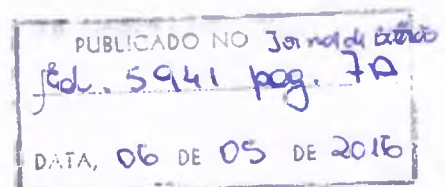 PUBLICADO NO Jornal de Beltrão
Ed. 5941 pag. 7A
DATA, 06 DE 05 DE 2016